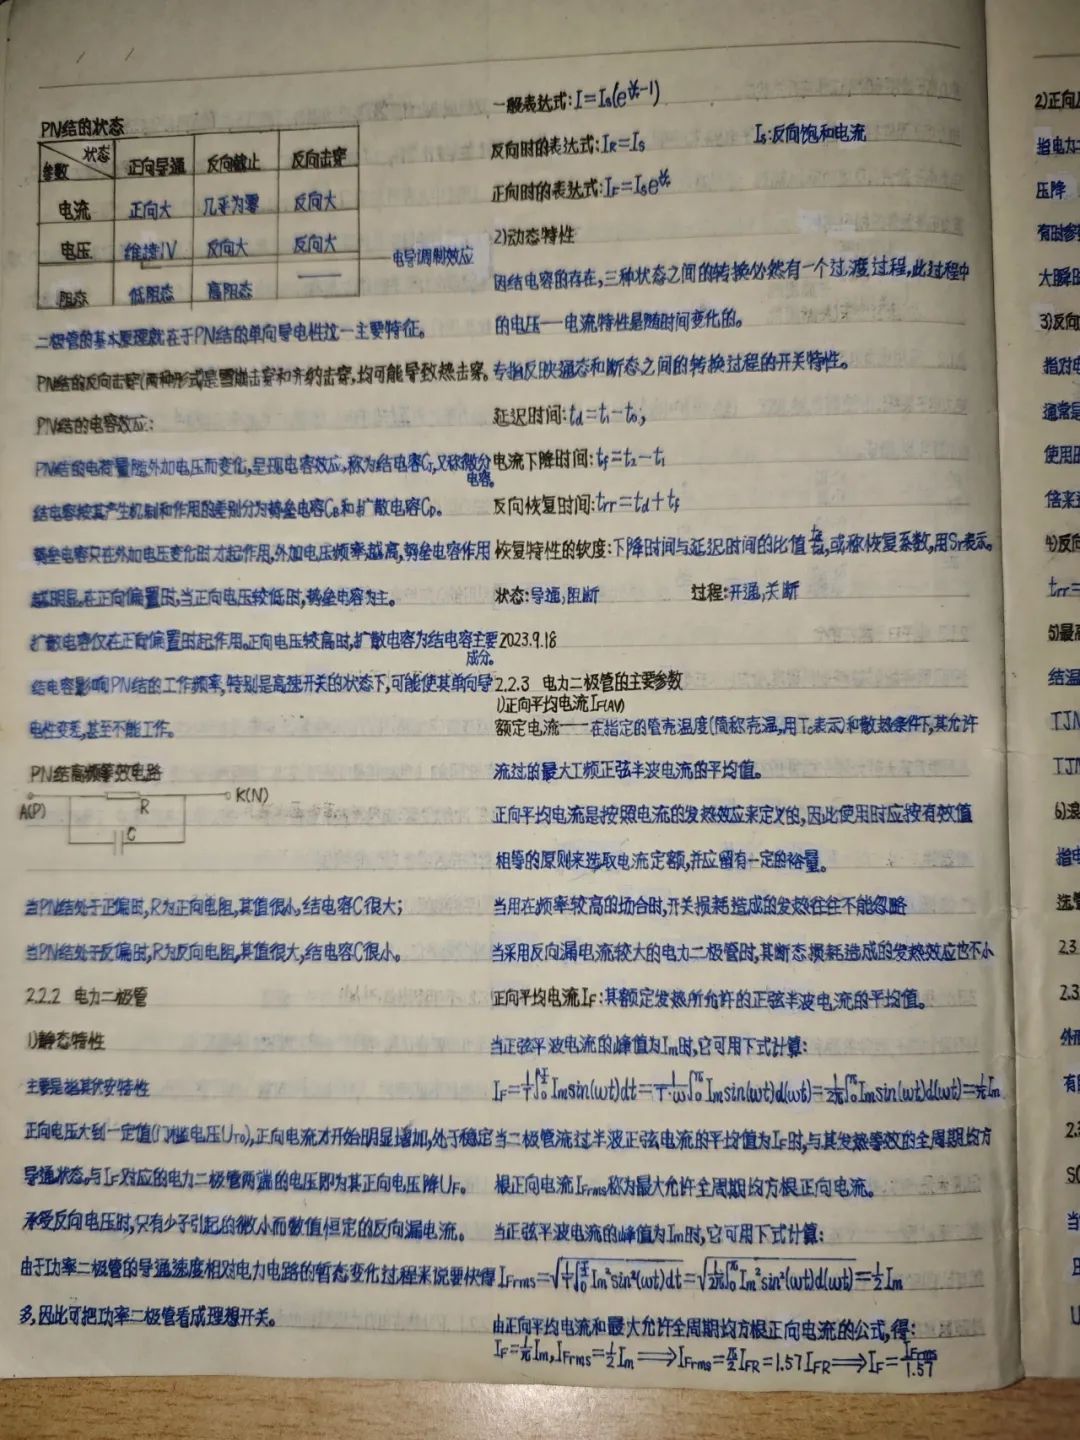 PN结的状态
状态
参数 正向导通 反向截止 反向击穿
电流 正向大 几乎为零 反向大
电压 维持1V 反向大 反向大
阻态 低阻态 高阻态 ——
电导调制效应
二极管的基本原理就在于PN结的单向导电性这一主要特征。
PN结的反向击穿(两种形式)是雪崩击穿和齐纳击穿,均可能导致热击穿。
PN结的电容效应:
PN结的电荷量随外加电压而变化,呈现电容效应,称为结电容CJ,又称微分
电容。
结电容按其产生机制和作用的差别分为势垒电容CB和扩散电容CD。
势垒电容只在外加电压变化时才起作用,外加电压频率越高,势垒电容作用
越明显。在正向偏置时,当正向电压较低时,势垒电容为主。
扩散电容仅在正向偏置时起作用。正向电压较高时,扩散电容为结电容主要
成分。
结电容影响PN结的工作频率,特别是高速开关的状态下,可能使其单向导
电性变差,甚至不能工作。
PN结高频等效电路
A(P) R K(N)
C
当PN结处于正偏时,R为正向电阻,其值很小,结电容C很大;
当PN结处于反偏时,R为反向电阻,其值很大,结电容C很小。
2.2.2 电力二极管
1)静态特性
主要是指其伏安特性
正向电压大到一定值(门槛电压UTO),正向电流才开始明显增加,处于稳定
导通状态。与IF对应的电力二极管两端的电压即为其正向电压降UF。
承受反向电压时,只有少子引起的微小而数值恒定的反向漏电流。
由于功率二极管的导通速度相对电力电路的暂态变化过程来说要快得
多,因此可把功率二极管看成理想开关。
一般表达式:
反向时的表达式:IR=IS IS:反向饱和电流
正向时的表达式:
2)动态特性
因结电容的存在,三种状态之间的转换必然有一个过渡过程,此过程中
的电压——电流特性是随时间变化的。
专指反映通态和断态之间的转换过程的开关特性。
延迟时间:td=t1-t0;
电流下降时间:tf=t2-t1
反向恢复时间:trr=td+tf
恢复特性的软度:下降时间与延迟时间的比值tf/td,或称恢复系数,用Sr表示。
状态:导通,阻断 过程:开通,关断
2023.9.18
2.2.3 电力二极管的主要参数
1)正向平均电流IF(AV)
额定电流——在指定的管壳温度(简称壳温,用Tc表示)和散热条件下,其允许
流过的最大工频正弦半波电流的平均值。
正向平均电流是按照电流的发热效应来定义的,因此使用时应按有效值
相等的原则来选取电流定额,并应留有一定的裕量。
当用在频率较高的场合时,开关损耗造成的发热往往不能忽略
当采用反向漏电流较大的电力二极管时,其断态损耗造成的发热效应也不小
正向平均电流IF:其额定发热所允许的正弦半波电流的平均值。
当正弦半波电流的峰值为Im时,它可用下式计算:
IF=1/T∫₀^(T/2) Imsin(ωt)dt=1/(T·ω)∫₀^π Imsin(ωt)d(ωt)=1/2π∫₀^π Imsin(ωt)d(ωt)=1/π Im
当二极管流过半波正弦电流的平均值为IF时,与其发热等效的全周期均方
根正向电流IFrms称为最大允许全周期均方根正向电流。
当正弦半波电流的峰值为Im时,它可用下式计算:
IFrms=√(1/T∫₀^(T/2) Im²sin²(ωt)dt)=√(1/2π∫₀^π Im²sin²(ωt)d(ωt))=1/2 Im
由正向平均电流和最大允许全周期均方根正向电流的公式,得:
IF=1/π Im,IFrms=1/2 Im⟹IFrms=π/2 IFR=1.57IFR⟹IF=IFrms/1.57
2)正向
指电力
压降
有时参
大瞬时
3)反向
指对电
通常是
使用时
倍来
4)反向
trr=
5)最高
结温
TJM
TJM
6)浪
指电
选管
2.3
2.3